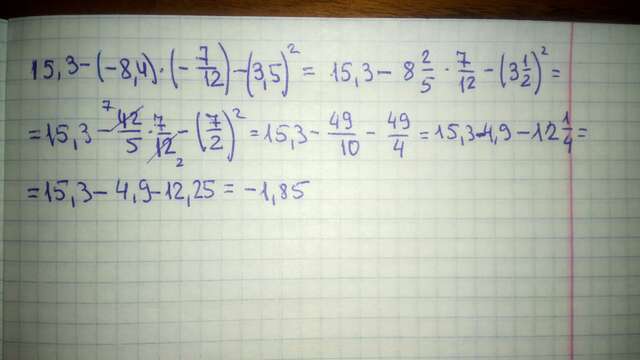 15,3-(-8,4)·(-7/12)-(3,5)²= 15,3-8 2/5·7/12-(3 1/2)²=
=15,3-42/5·7/12-(7/2)²=15,3-49/10-49/4=15,3-4,9-12 1/4=
=15,3-4,9-12,25=-1,85